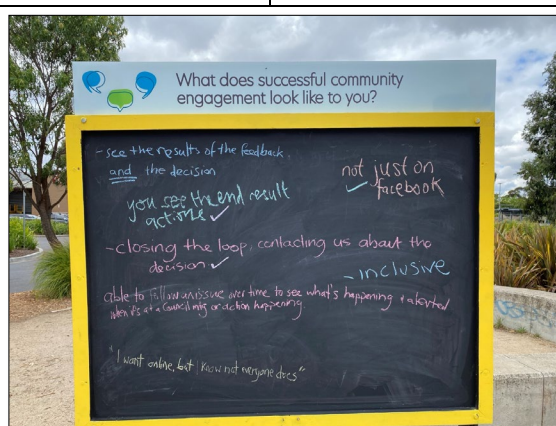 What does successful community
engagement look like to you?
- see the results of the feedback
and the decision
not just on
facebook
you see the end result
actions
- closing the loop, contacting us about the
decision.
- inclusive
able to follow an issue over time to see what's happening + alerted
when it's at a Council mtg or action happening.
"I want online, but I know not everyone does"